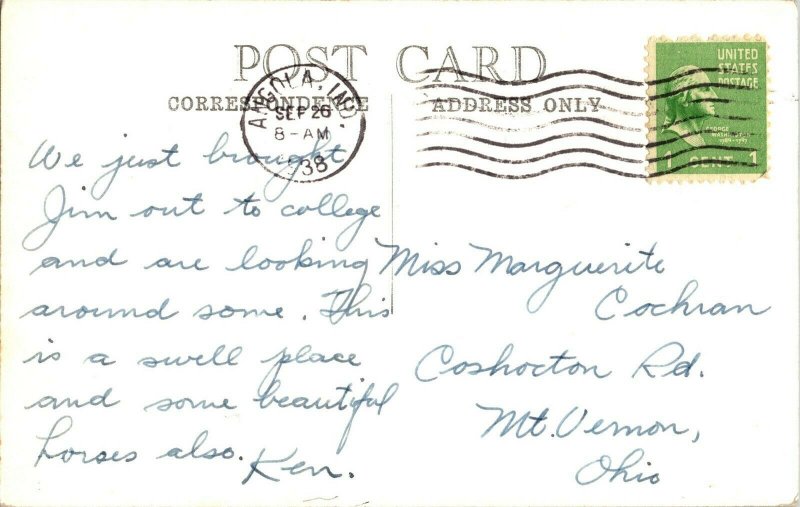 POST CARD
CORRESPONDENCE ADDRESS ONLY
ANGOLA, IND.
SEP 26
8-AM
38
UNITED
STATES
POSTAGE
GEORGE
WASHINGTON
1 CENT 1
We just brought
Jim out to college
and are looking
around some. This
is a swell place
and some beautiful
horses also.
Ken.
Miss Marguerite
Cochran
Coshocton Rd.
Mt. Vernon,
Ohio